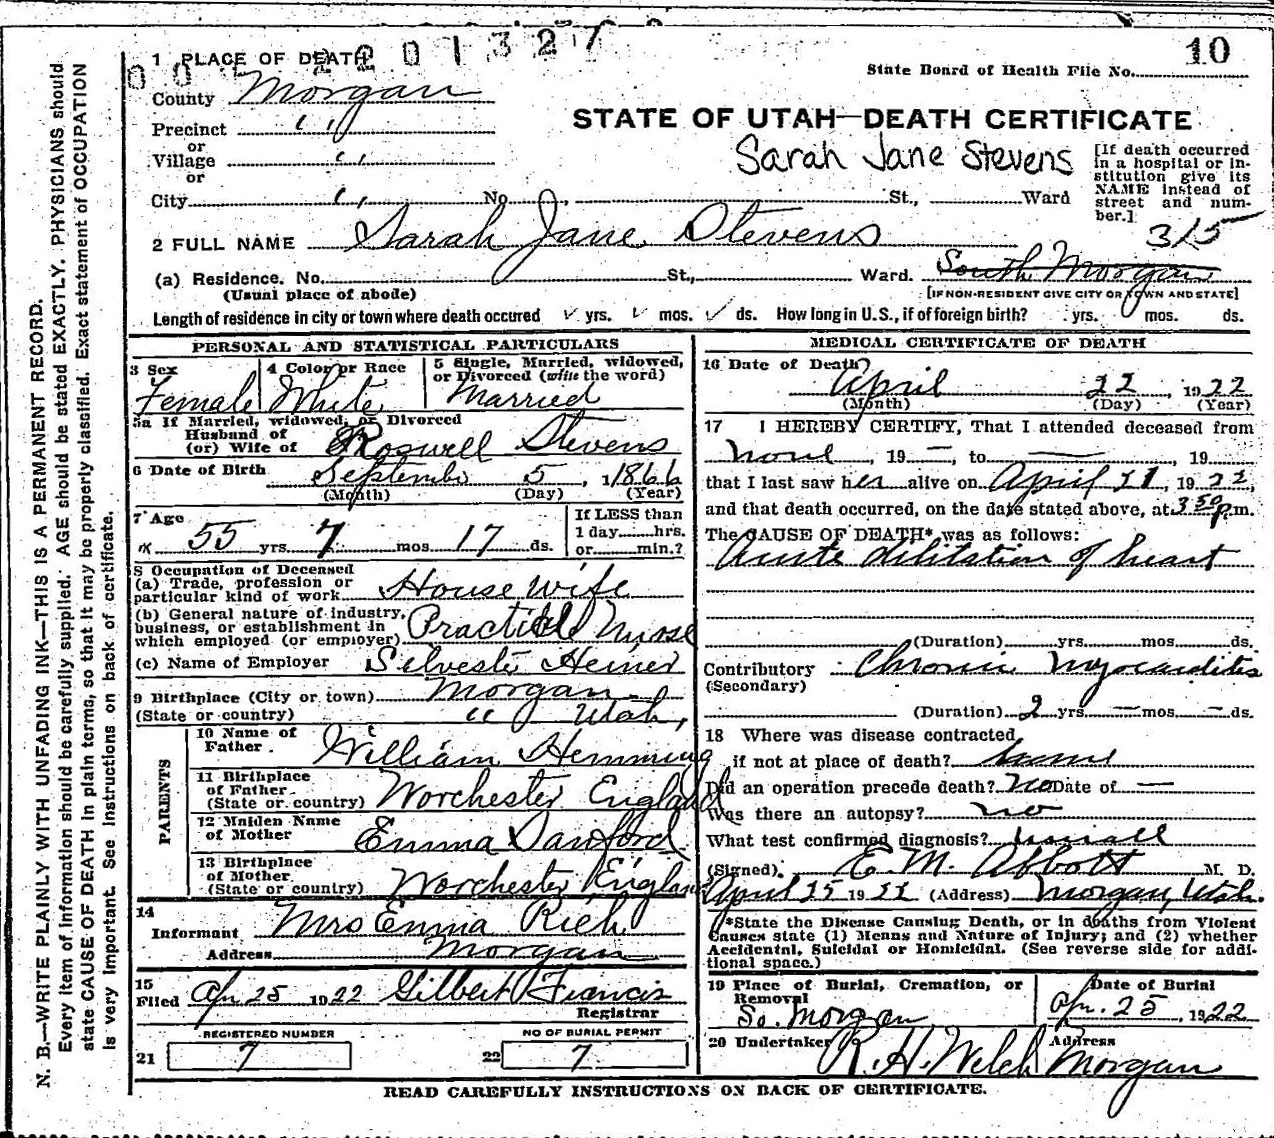 10
1 PLACE OF DEATH
00 2201327
State Board of Health File No.
County Morgan
STATE OF UTAH—DEATH CERTIFICATE
Precinct " "
or
Village " "
or
Sarah Jane Stevens
[If death occurred in a hospital or institution give its NAME instead of street and number.]
City " " No. St., Ward
315
2 FULL NAME Sarah Jane Stevens
(a) Residence. No. St., Ward. South Morgan
(Usual place of abode) [IF NON-RESIDENT GIVE CITY OR TOWN AND STATE]
Length of residence in city or town where death occured ✓ yrs. ✓ mos. ✓ ds. How long in U.S., if of foreign birth? yrs. mos. ds.
PERSONAL AND STATISTICAL PARTICULARS
3 Sex
Female
4 Color or Race
White
5 Single, Married, widowed, or Divorced (write the word)
Married
5a If Married, widowed, or Divorced
Husband of
(or) Wife of Roswell Stevens
6 Date of Birth September 5, 1866
(Month) (Day) (Year)
7 Age
55 yrs 7 mos 17 ds.
If LESS than
1 day......hrs.
or......min.?
8 Occupation of Deceased
(a) Trade, profession or
particular kind of work House wife
(b) General nature of industry,
business, or establishment in
which employed (or employer) Practical Nurse
(c) Name of Employer Silvester Heiner
9 Birthplace (City or town) Morgan
(State or country) " Utah,
PARENTS
10 Name of
Father William Hemming
11 Birthplace
of Father
(State or country) Worchester England
12 Maiden Name
of Mother Emma Danford
13 Birthplace
of Mother
(State or country) Worchester, England
14
Informant Mrs Emma Rich
Address Morgan
15
Filed Apr 25 1922 Gilbert Francis
Registrar
REGISTERED NUMBER
21 7
NO OF BURIAL PERMIT
22 7
MEDICAL CERTIFICATE OF DEATH
16 Date of Death
April 22 1922
(Month) (Day) (Year)
17 I HEREBY CERTIFY, That I attended deceased from
none, 19 —, to —, 19
that I last saw her alive on April 21, 1922,
and that death occurred, on the date stated above, at 3 50 p.m.
The CAUSE OF DEATH* was as follows:
Acute dilitation of heart
(Duration) yrs. mos. ds.
Contributory Chronic myocarditis
(Secondary)
(Duration) 2 yrs. — mos. — ds.
18 Where was disease contracted
if not at place of death?
Did an operation precede death? no Date of —
Was there an autopsy? no
What test confirmed diagnosis? usual
(Signed) E. M. Abbott M. D.
April 25 1922 (Address) Morgan, Utah.
*State the Disease Causing Death, or in deaths from Violent
Causes state (1) Means and Nature of Injury; and (2) whether
Accidental, Suicidal or Homicidal. (See reverse side for addi-
tional space.)
19 Place of Burial, Cremation, or
Removal
So. Morgan
Date of Burial
Apr. 25, 1922
20 Undertaker R. H. Welch
Address
Morgan
READ CAREFULLY INSTRUCTIONS ON BACK OF CERTIFICATE.
N. B.—WRITE PLAINLY WITH UNFADING INK—THIS IS A PERMANENT RECORD.
Every item of information should be carefully supplied. AGE should be stated EXACTLY. PHYSICIANS should
state CAUSE OF DEATH in plain terms, so that it may be properly classified. Exact statement of OCCUPATION
is very important. See instructions on back of certificate.